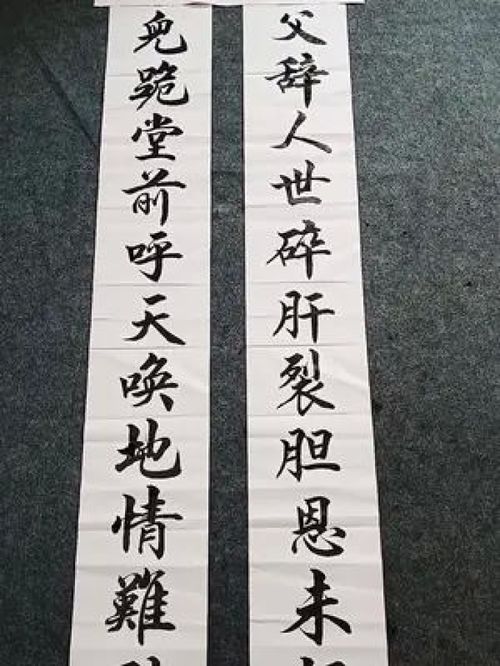 父辞人世碎肝裂胆恩未
兒跪堂前呼天唤地情難